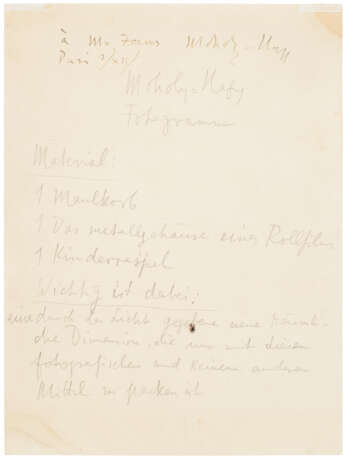 à Mr Zervos Moholy=Nagy
Paris
Moholy=Nagy
Fotogramm
Material:
1 Maulkorb
1 Das metallgehäuse eines Rollfilms
1 Kinderraspel
Wichtig ist dabei:
eine durch das Licht gegebene neue räumli-
che Dimension, die nur mit diesem
fotografischen und keinem anderen
Mittel zu packen ist